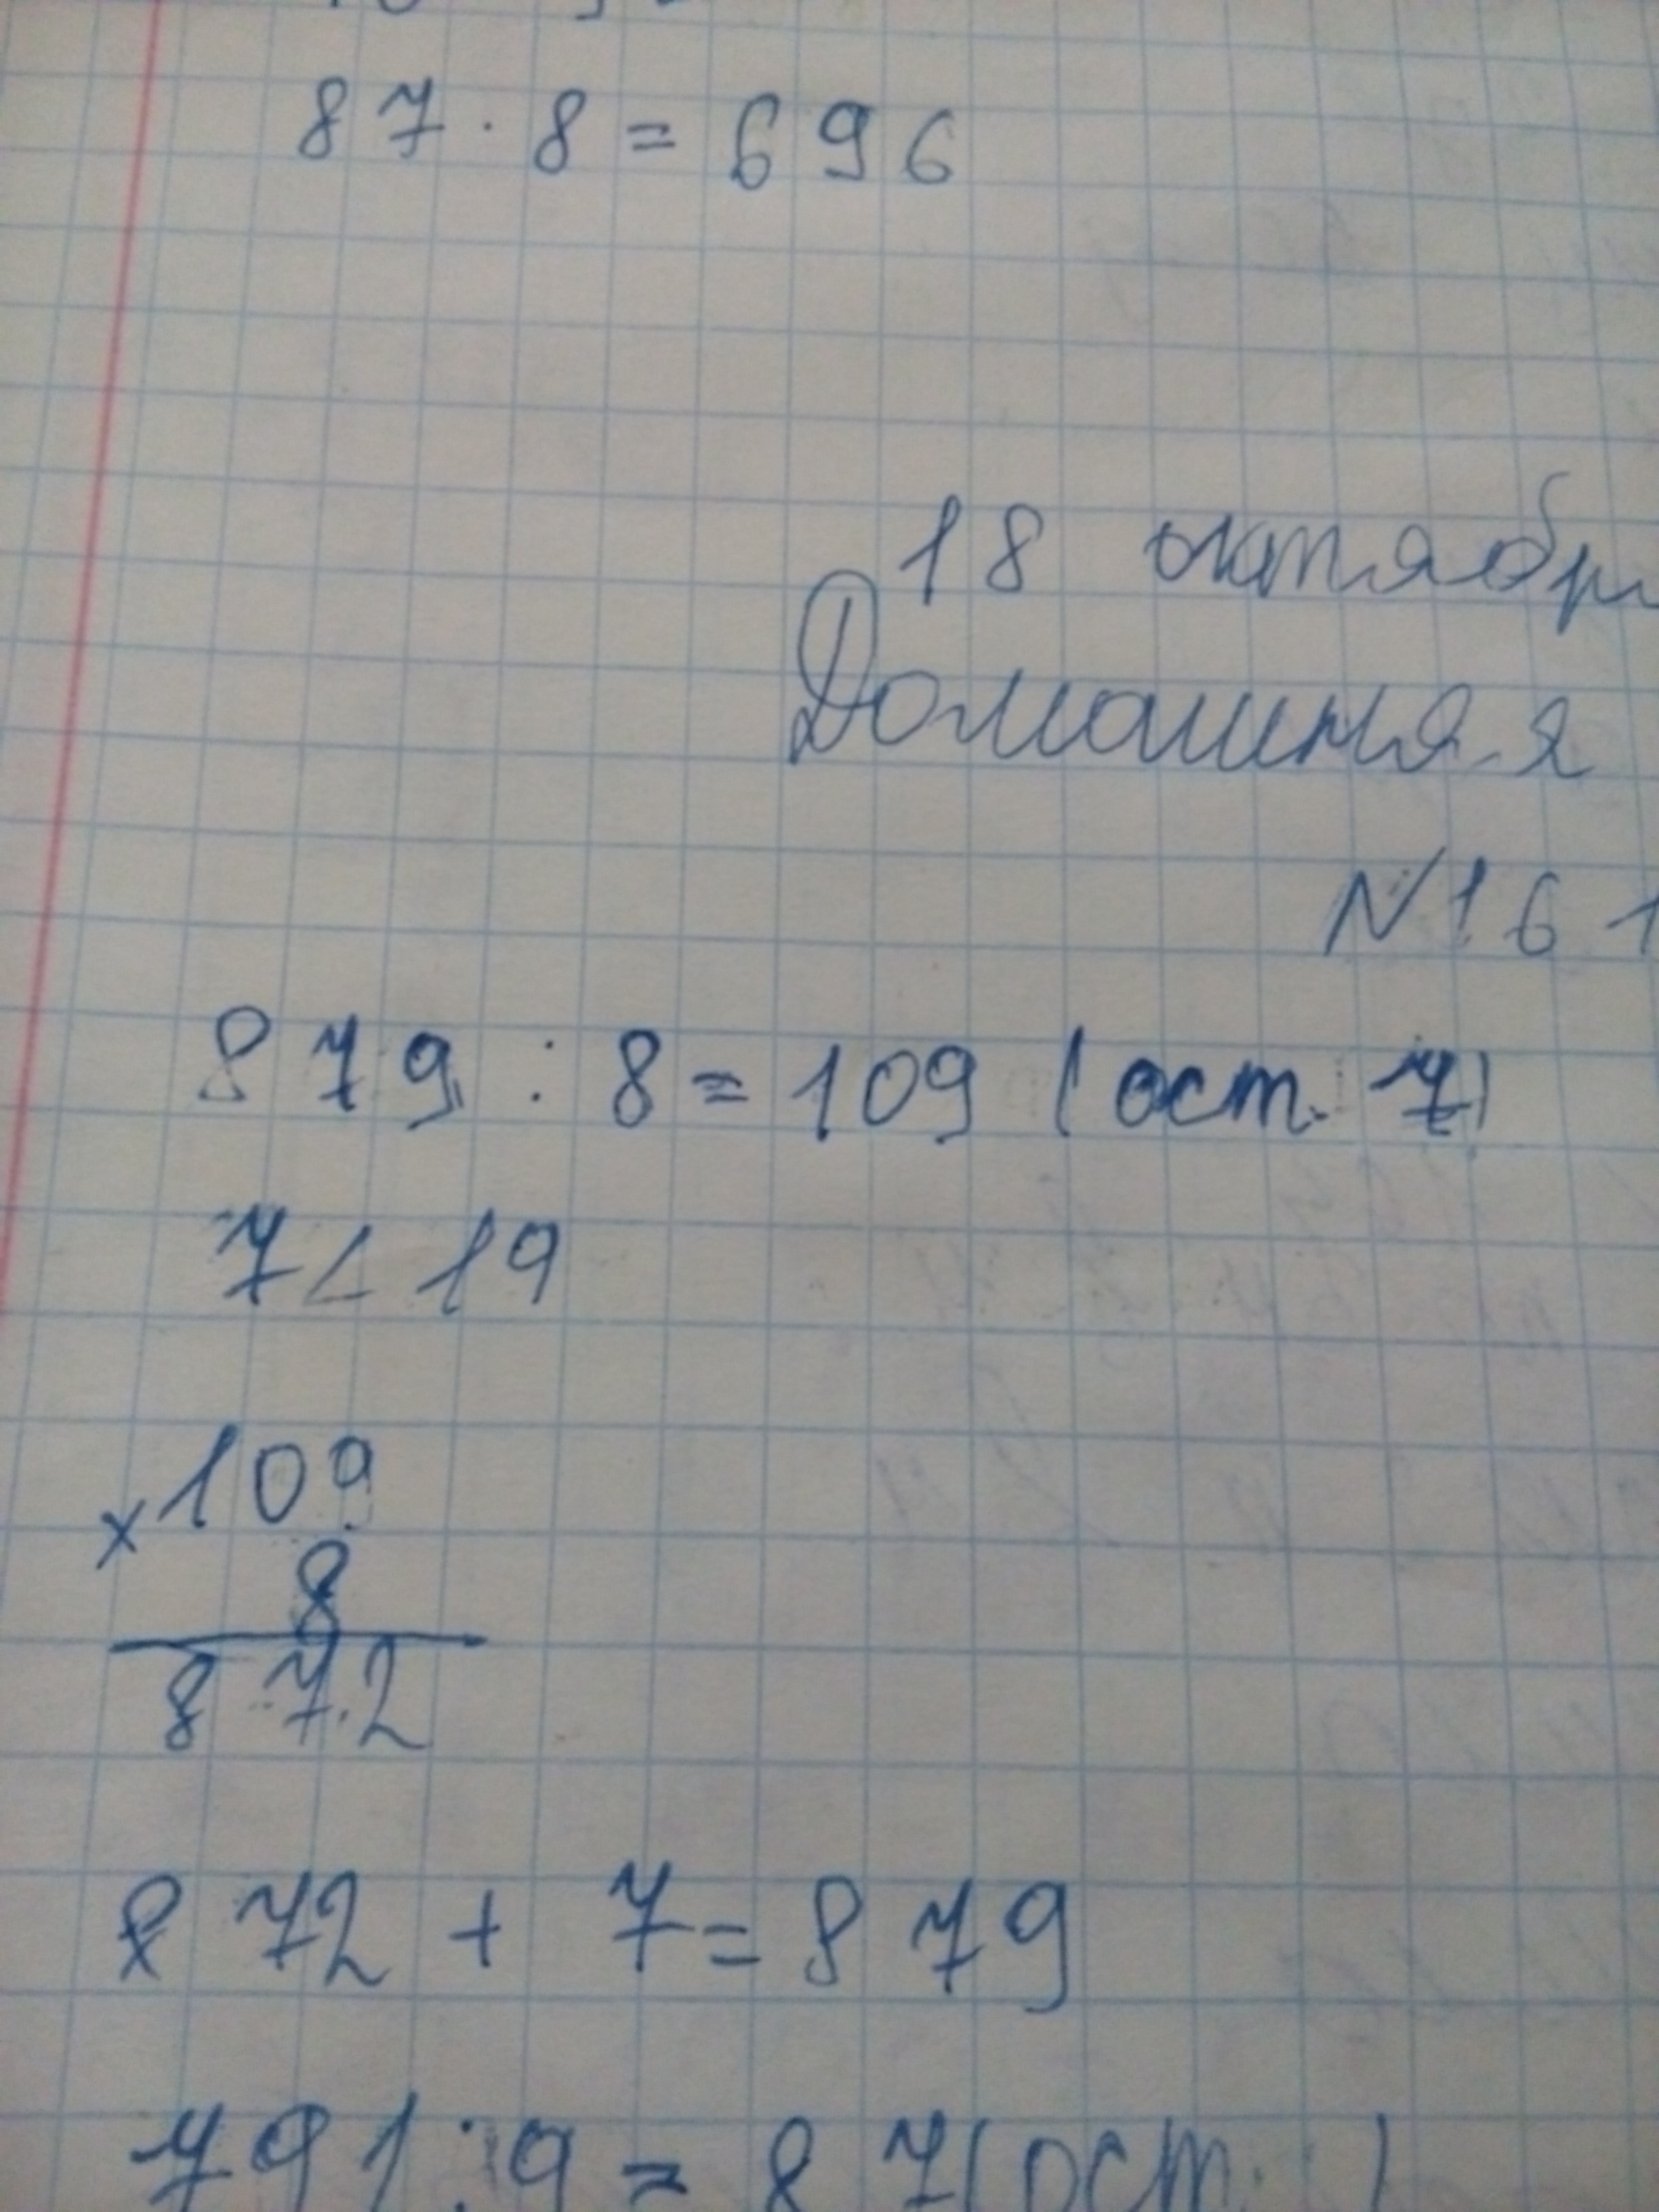 87 · 8 = 696
18 октябр
Домашняя
N161
879 : 8 = 109 (ост. 7)
7 < 19
×109
8
872
872 + 7 = 879
791 : 9 = 87 (ост. )